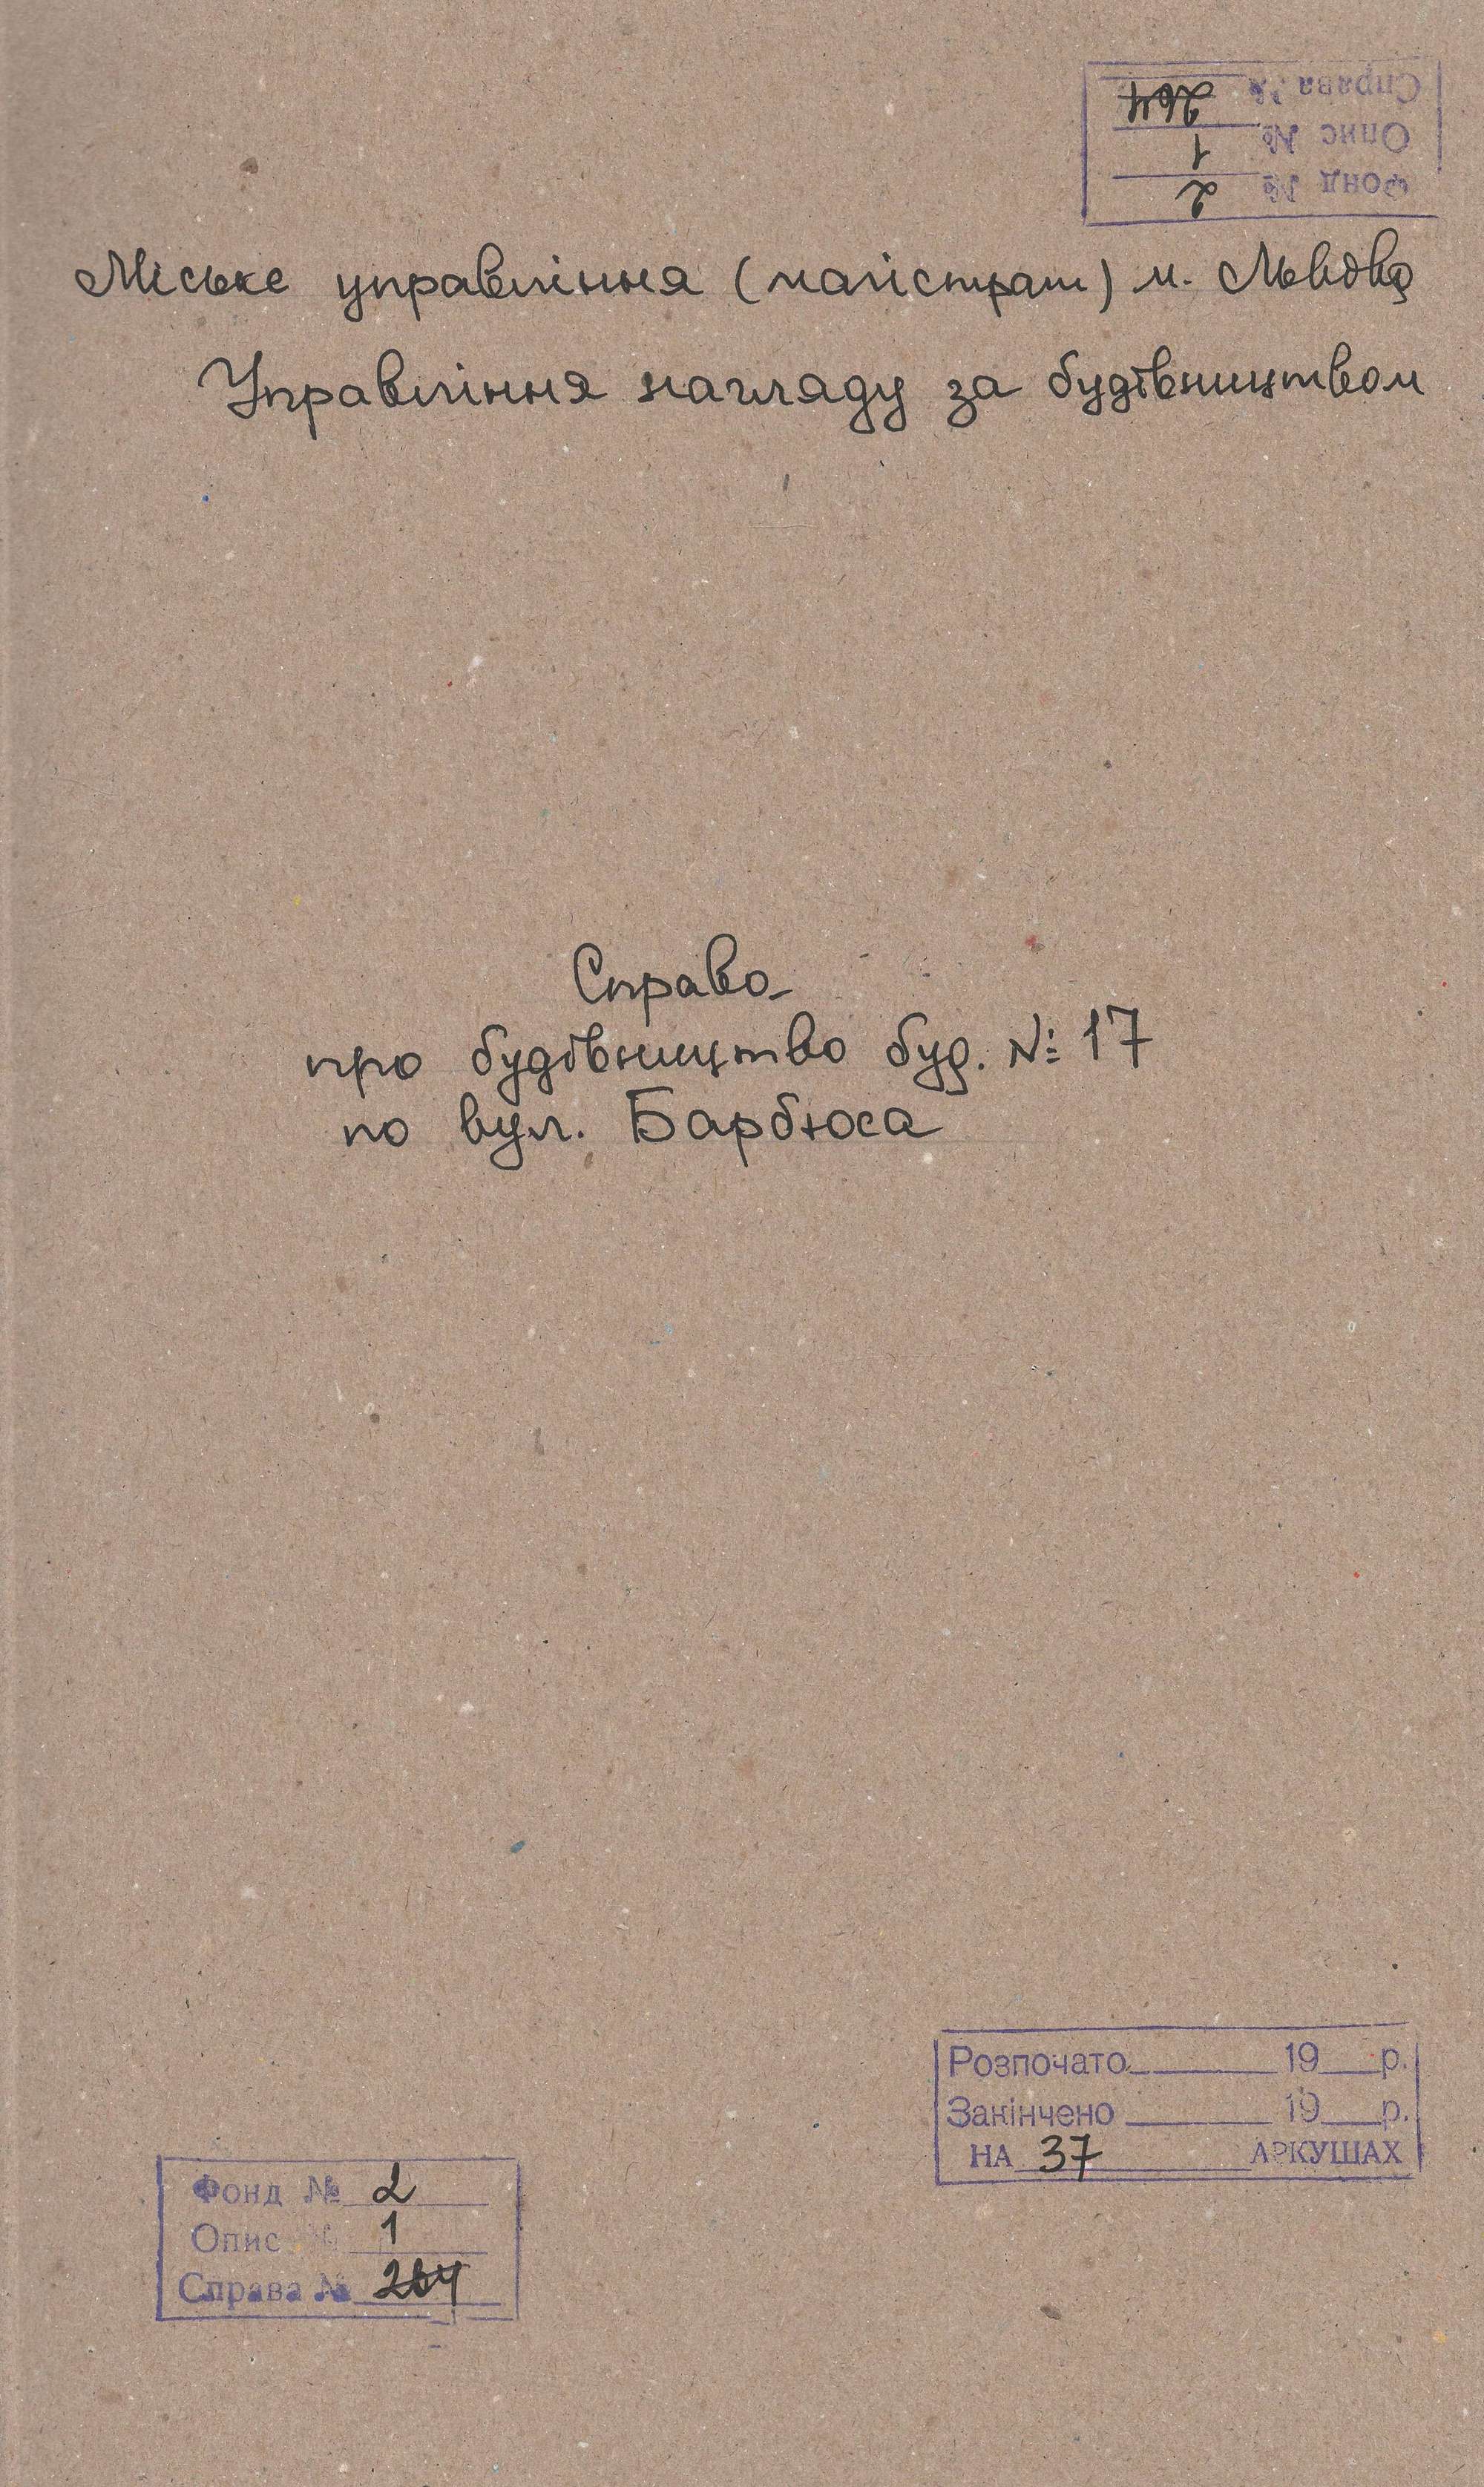 Справа № 264
Опис № 1
Фонд № 2
Міське управління (магістрат) м. Львова
Управління нагляду за будівництвом
Справа
про будівництво буд. № 17
по вул. Барбюса
Розпочато 19 р.
Закінчено 19 р.
НА 37 АРКУШАХ
Фонд № 2
Опис № 1
Справа № 264